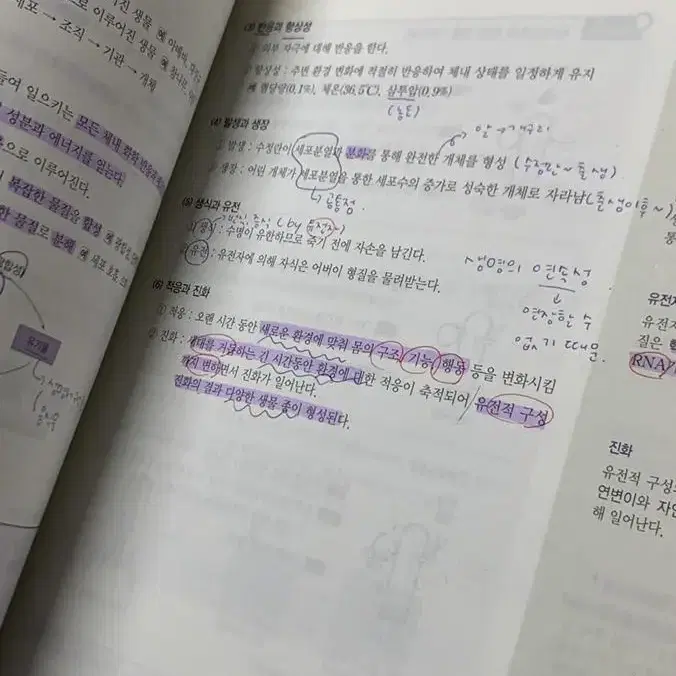 로 이루어진 생물 예 아메바,
으로 이루어진 생물 예
세포 → 조직 → 기관 → 개체
들여 일으키는 모든 체내 화학 반응과
성분과 에너지를 얻는다
으로 이루어진다.
복잡한 물질을 합성 예 광합성
한 물질로 분해 예 세포 호흡
합성
유기물
(3) 반응과 항상성
① 외부 자극에 대해 반응을 한다.
② 항상성 : 주변 환경 변화에 적절히 반응하여 체내 상태를 일정하게 유지
예 혈당량(0.1%), 체온(36.5℃), 삼투압(0.9%)
(농도)
(4) 발생과 생장
알 → 개구리
① 발생 : 수정란이 세포분열과 분화를 통해 완전한 개체를 형성 (수정란~출생)
② 생장 : 어린 개체가 세포분열을 통한 세포수의 증가로 성숙한 개체로 자라남 (출생이후~)
공통점.
(5) 생식과 유전
① 생식 : 수명이 유한하므로 죽기 전에 자손을 남긴다.
② 유전 : 유전자에 의해 자식은 어버이 형질을 물려받는다.
생명의 연속성
연장할 수
없기 때문.
(6) 적응과 진화
① 적응 : 오랜 시간 동안 새로운 환경에 맞춰 몸의 구조, 기능, 행동 등을 변화시킴
② 진화 : 세대를 거듭하는 긴 시간동안 환경에 대한 적응이 축적되어 유전적 구성
까지 변하면서 진화가 일어난다.
진화의 결과 다양한 생물 종이 형성된다.
유전자
질은
RNA
진화
유전적 구성
연변이와
해 일어난다.